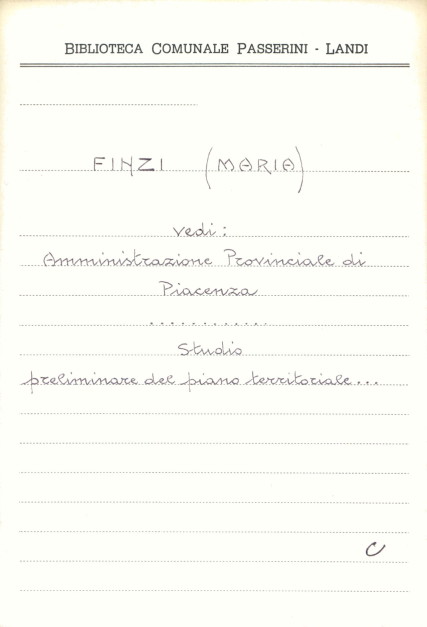 BIBLIOTECA COMUNALE PASSERINI - LANDI
FINZI (MARIA)
vedi:
Amministrazione Provinciale di
Piacenza
............
Studio
preliminare del piano territoriale...
C